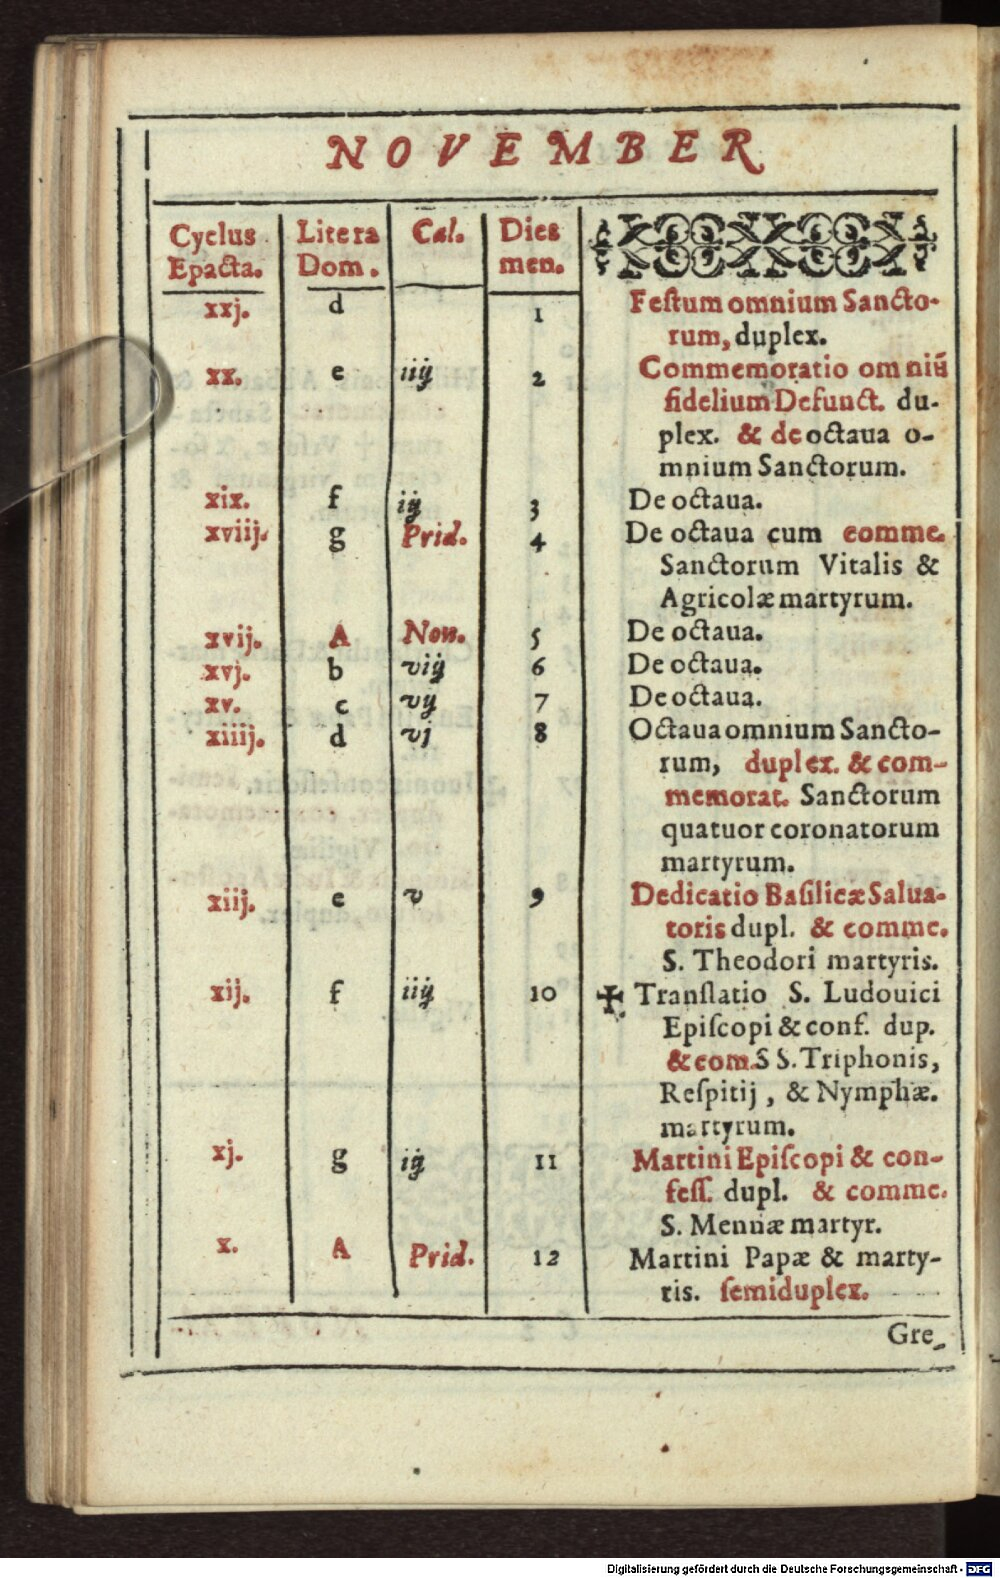 NOVEMBER
Cyclus Epacta. Litera Dom. Cal. Dies men.
xxj. d 1 Feſtum omnium Sancto-
rum, duplex.
xx. e iiij 2 Commemoratio omniũ
fidelium Defunct. du-
plex. & de octaua o-
mnium Sanctorum.
xix. f iij 3 De octaua.
xviij. g Prid. 4 De octaua cum comme.
Sanctorum Vitalis &
Agricolæ martyrum.
xvij. A Non. 5 De octaua.
xvj. b viij 6 De octaua.
xv. c vij 7 De octaua.
xiiij. d vj 8 Octaua omnium Sancto-
rum, duplex. & com-
memorat. Sanctorum
quatuor coronatorum
martyrum.
xiij. e v 9 Dedicatio Baſilicæ Salua-
toris dupl. & comme.
S. Theodori martyris.
xij. f iiij 10 ✠ Tranſlatio S. Ludouici
Epiſcopi & conf. dup.
& com. SS. Triphonis,
Reſpitij, & Nymphæ.
martyrum.
xj. g iij 11 Martini Epiſcopi & con-
feſſ. dupl. & comme.
S. Mennæ martyr.
x. A Prid. 12 Martini Papæ & marty-
ris. ſemiduplex.
Gre-
Digitalisierung gefördert durch die Deutsche Forschungsgemeinschaft - DFG